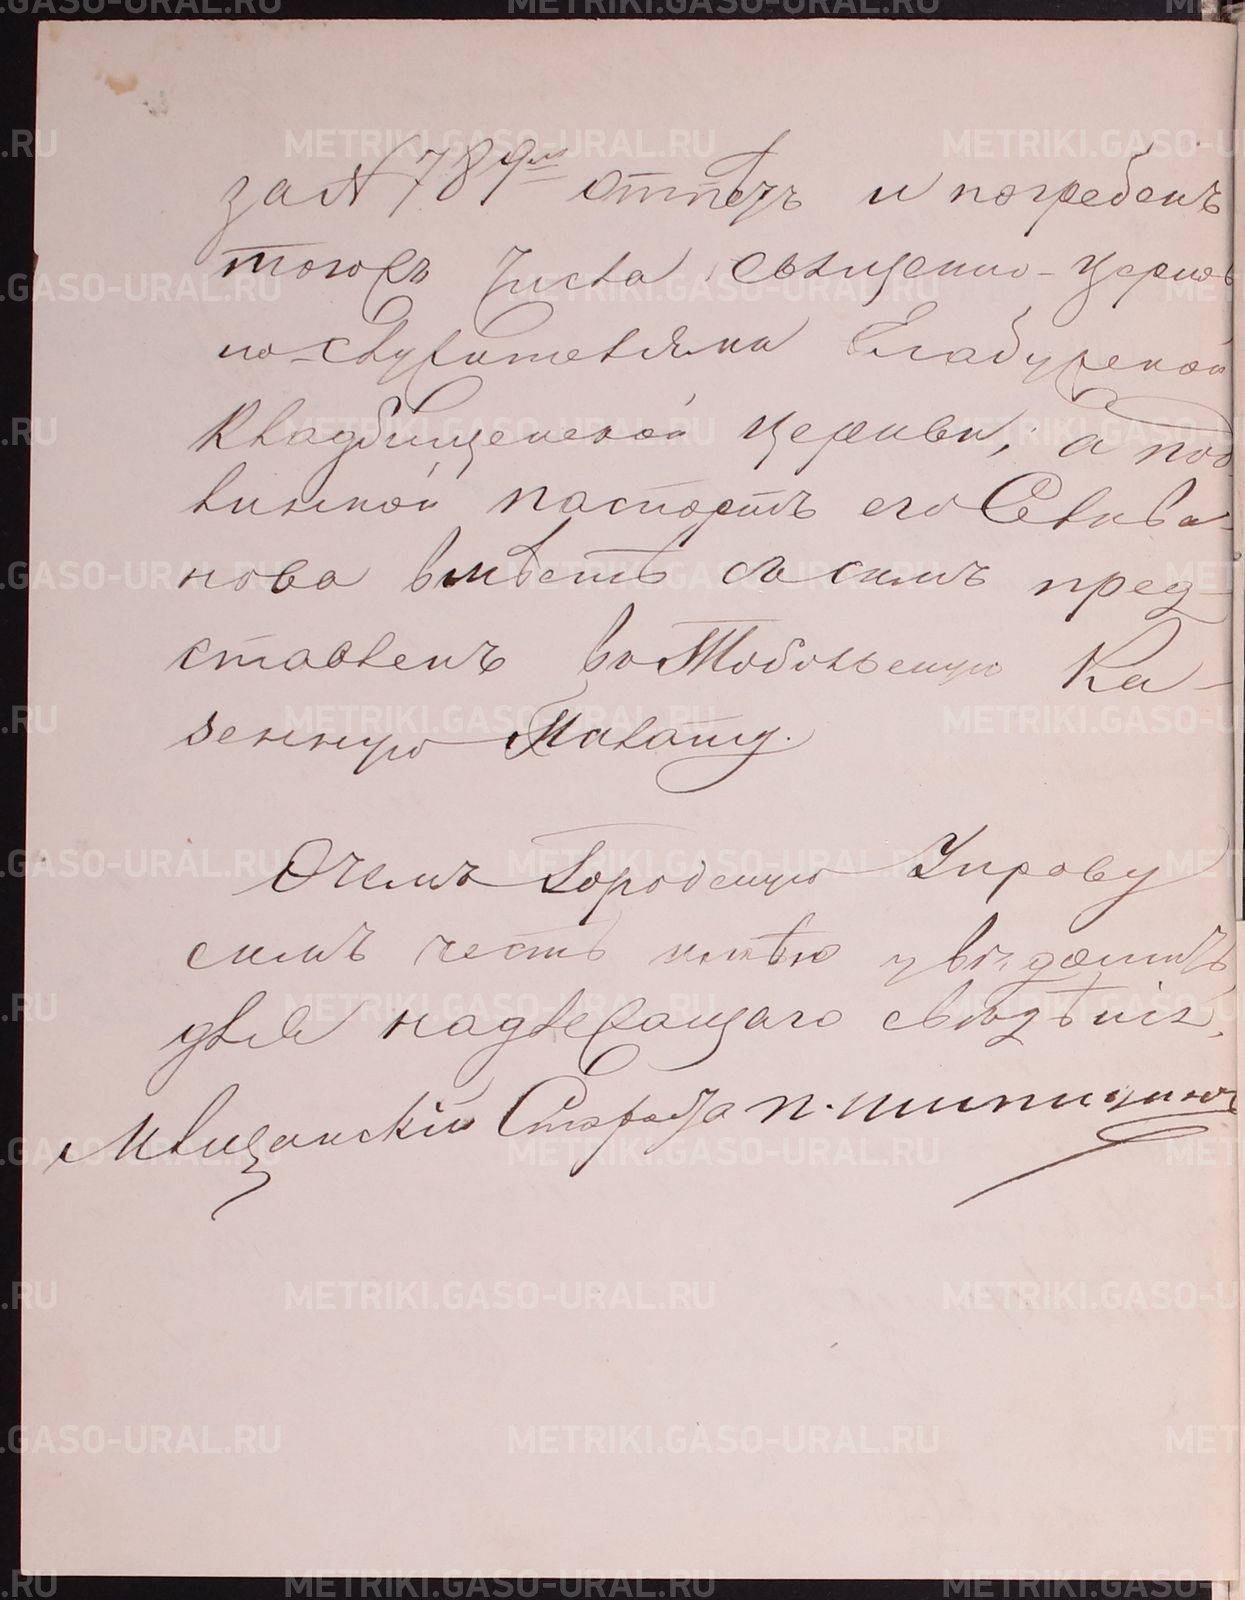 за № 789м отпетъ и погребенъ
тогожъ числа священно-церков
но-служителями Елабужской
Кладбищенской церкви, а под
линной паспортъ его Селива-
нова вместе съ симъ пред-
ставленъ въ Тобольскую Ка-
зенную Палату.
О чемъ Городскую Управу
симъ честь имѣю увѣдомить
для надлежащаго свѣдѣнія.
Мещанскій Староста П. Шипицинъ